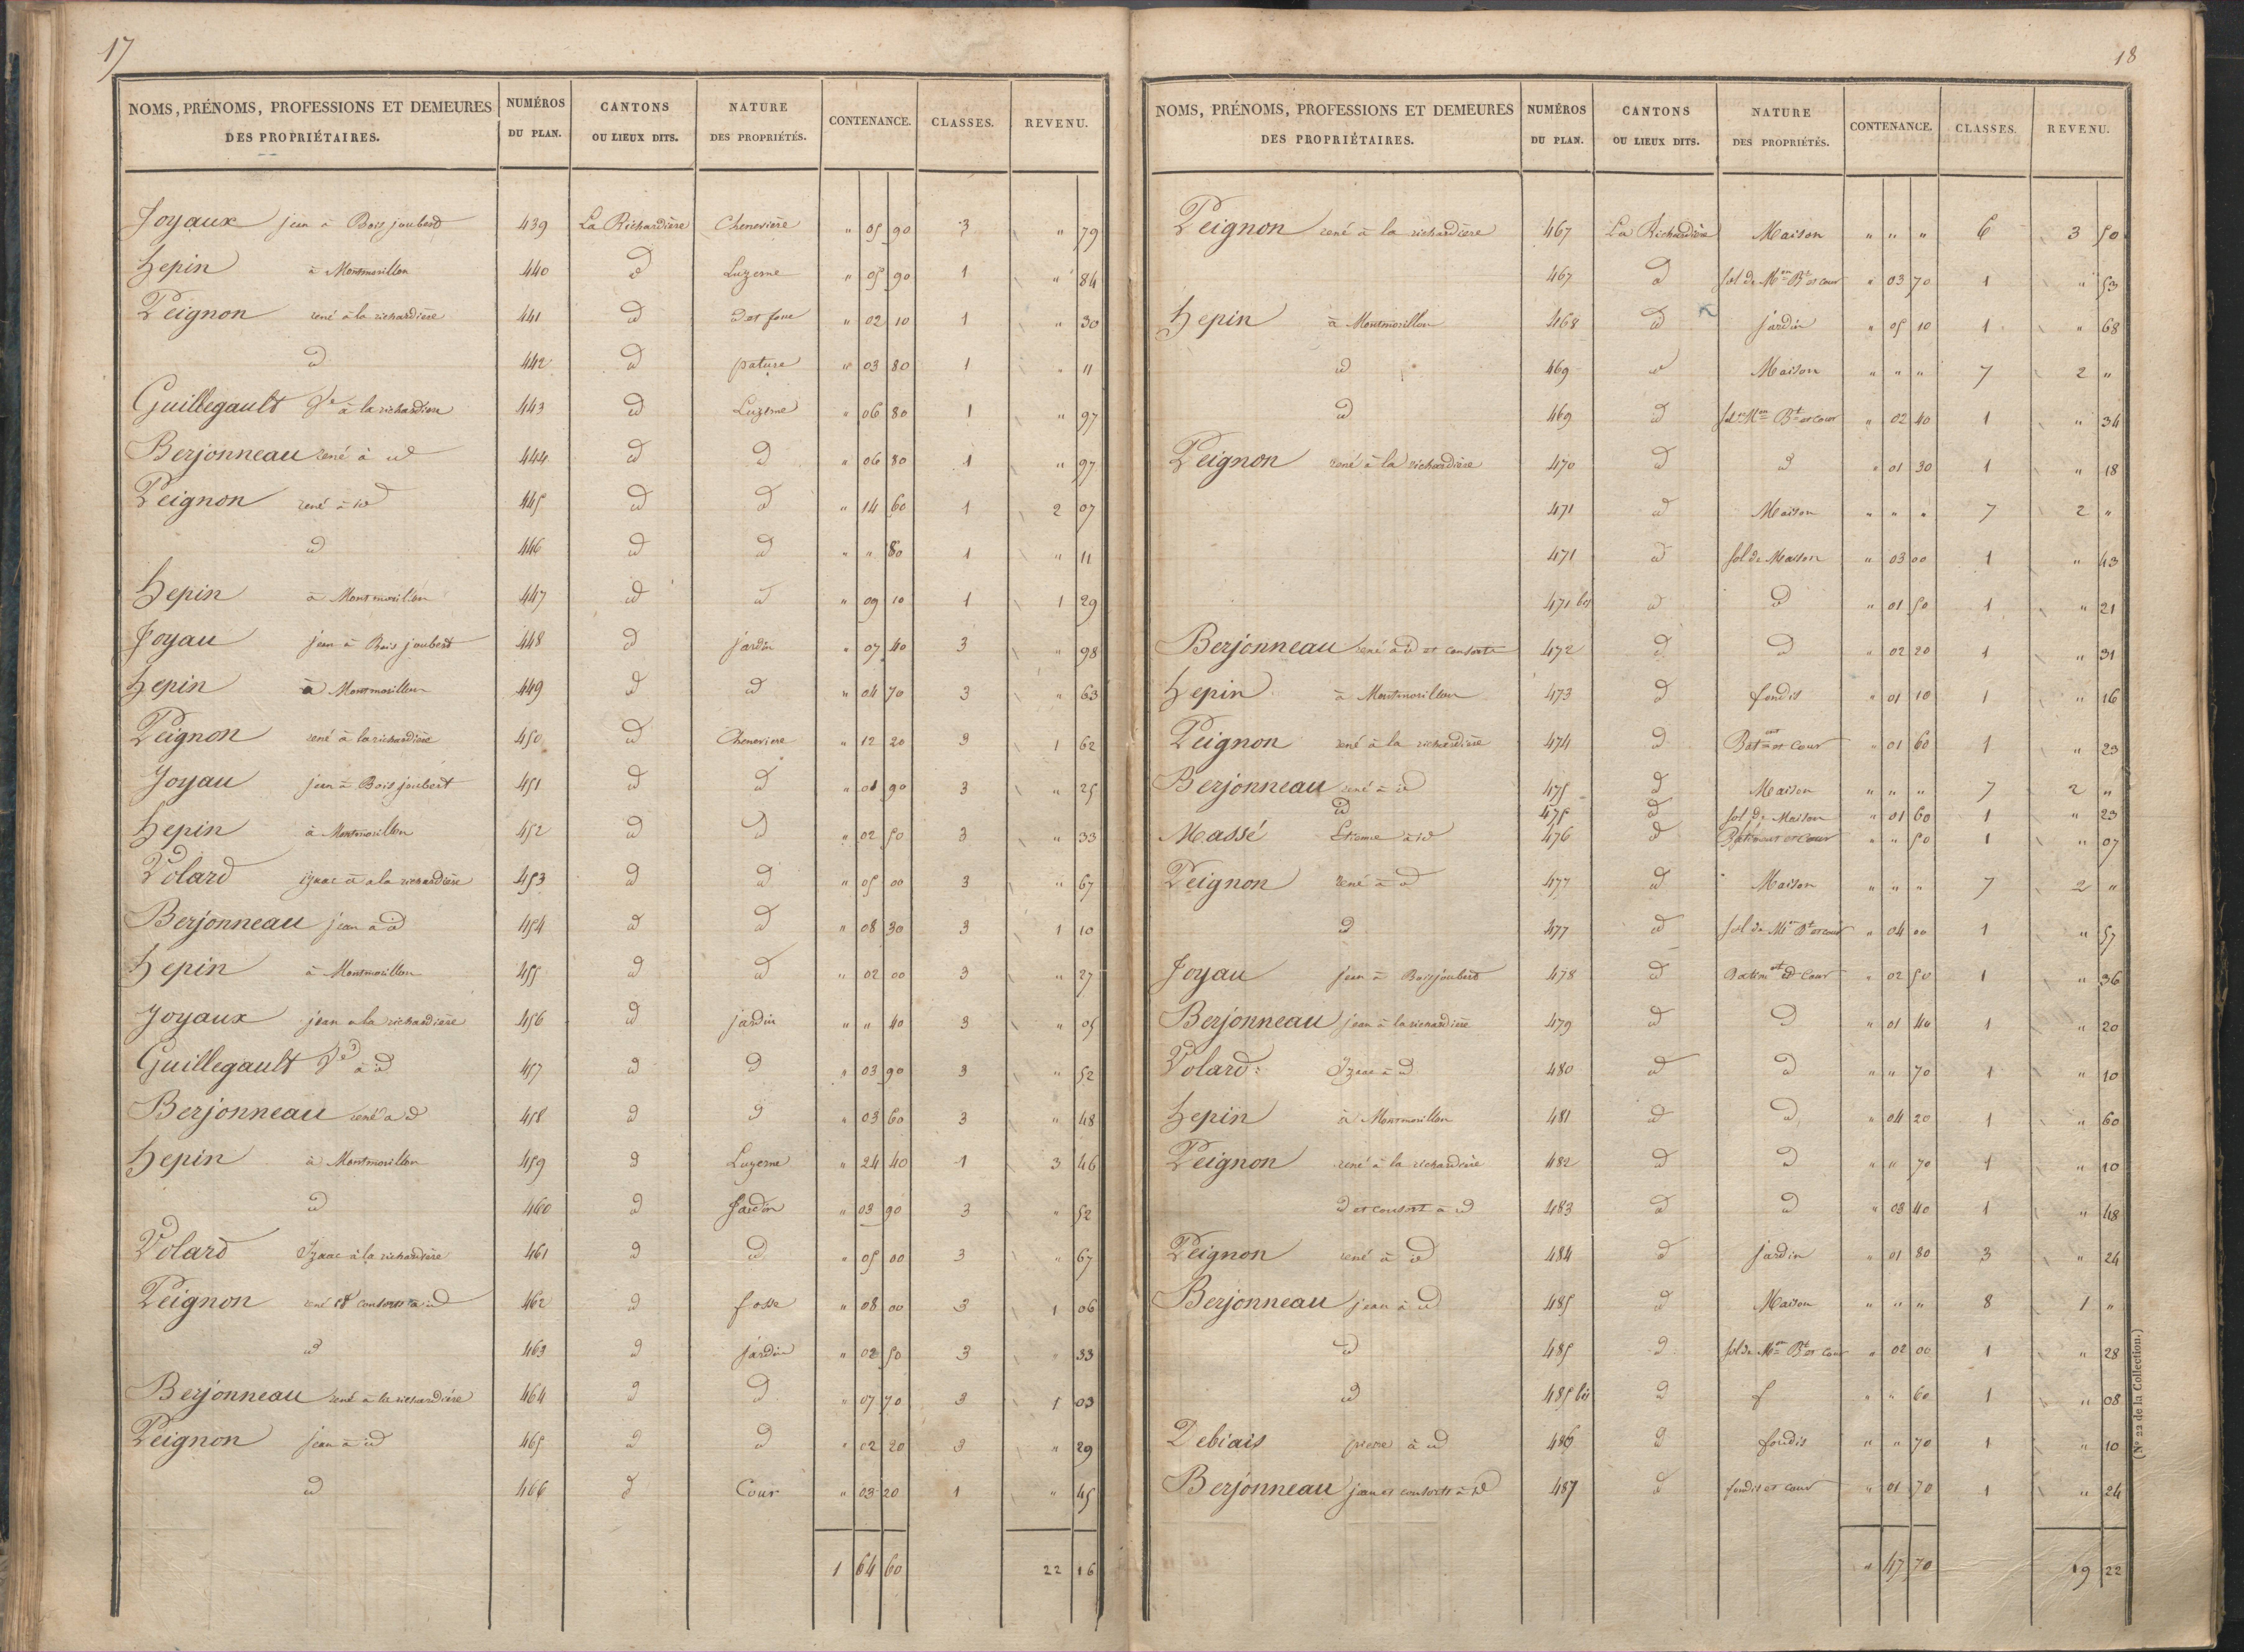 17
NOMS, PRÉNOMS, PROFESSIONS ET DEMEURES DES PROPRIÉTAIRES. NUMÉROS DU PLAN. CANTONS OU LIEUX DITS. NATURE DES PROPRIÉTÉS. CONTENANCE. CLASSES. REVENU.
Joyaux jean à Bois joubert 439 La Richardière Chenevière " 05 90 3 " 79
hepin à Montmorillon 440 id Luzerne " 05 90 1 " 84
Peignon rené à la richardière 441 id id et 02 10 1 " 30
id 442 id pature " 03 80 1 " 11
Guillegault Ve à la richardiere 443 id Luzerne " 06 80 1 " 97
Berjonneau rené à id 444 id id " 06 80 1 " 97
Peignon rené à id 445 id id " 14 60 1 2 07
id 446 id id " " 80 1 " 11
hepin à Montmorillon 447 id id " 09 10 1 1 29
Joyau jean à Bois joubert 448 id jardin " 07 40 3 " 98
hepin à Montmorillon 449 id id " 04 70 3 " 63
Peignon rené à la richardière 450 id Cheneviere " 12 20 3 1 62
Joyau jean à Bois joubert 451 id id " 01 90 3 " 25
hepin à Montmorillon 452 id id " 02 50 3 " 33
Volard izaac à a la richardière 453 id id " 05 00 3 " 67
Berjonneau jean à id 454 id id " 08 30 3 1 10
hepin à Montmorillon 455 id id " 02 00 3 " 27
Joyaux jean a la richardière 456 id jardin " " 40 3 " 05
Guillegault Ve à id 457 id id " 03 90 3 " 52
Berjonneau rené a id 458 id id " 03 60 3 " 48
hepin à Montmorillon 459 id Luzerne " 24 40 1 3 46
id 460 id Jardin " 03 90 3 " 52
Volard Izaac à la richardière 461 id id " 05 00 3 " 67
Peignon rené et consorts à id 462 id fosse " 08 00 3 1 06
id 463 id jardin " 02 50 3 " 33
Berjonneau rené à la richardière 464 id id " 07 70 3 1 03
Peignon jean à id 465 id id " 02 20 3 " 29
id 466 id Cour " 03 20 1 " 45
1 64 60 22 16
18
NOMS, PRÉNOMS, PROFESSIONS ET DEMEURES DES PROPRIÉTAIRES. NUMÉROS DU PLAN. CANTONS OU LIEUX DITS. NATURE DES PROPRIÉTÉS. CONTENANCE. CLASSES. REVENU.
Peignon rené à la richardière 467 La Richardière Maison " " " 6 3 50
467 id sol de Mon Bt et cour " 03 70 1 " 53
hepin à Montmorillon 468 id jardin " 05 10 1 " 68
id 469 id Maison " " " 7 2 "
id 469 id sol Mon Bt et cour " 02 40 1 " 34
Peignon rené à la richardière 470 id id " 01 30 1 " 18
471 id Maison " " " 7 2 "
471 id sol de Maison " 03 00 1 " 43
471 bis id id " 01 50 1 " 21
Berjonneau rené à id et consorts 472 id id " 02 20 1 " 31
hepin à Montmorillon 473 id fondis " 01 10 1 " 16
Peignon rené à la richardière 474 id Batnt et Cour " 01 60 1 " 23
Berjonneau rené à id 475 id Maison " " " 7 2 "
id 475 id sol de Maison " 01 60 1 " 23
Massé Etienne à id 476 id Batiment et cour " " 50 1 " 07
Peignon rené à id 477 id Maison " " " 7 2 "
id 477 id sol de Mon Bt et cour " 04 00 1 " 57
Joyau jean à Bois joubert 478 id Batimnt et Cour " 02 50 1 " 36
Berjonneau jean à la richardière 479 id id " 01 40 1 " 20
Volard Izaac à id 480 id id " " 70 1 " 10
hepin à Montmorillon 481 id id " 04 20 1 " 60
Peignon rené à la richardière 482 id id " " 70 1 " 10
id et consort à id 483 id id " 03 40 1 " 48
Peignon rené à id 484 id jardin " 01 80 3 " 24
Berjonneau jean à id 485 id Maison " " " 8 1 "
id 485 id sol de Mon Bt et cour " 02 00 1 " 28
id 485 bis id " " 60 1 " 08
Debiais pierre à id 486 id fondis " " 70 1 " 10
Berjonneau jean et consorts à id 487 id fondis et cour " 01 70 1 " 24
" 47 70 19 22
(No 22 de la Collection.)